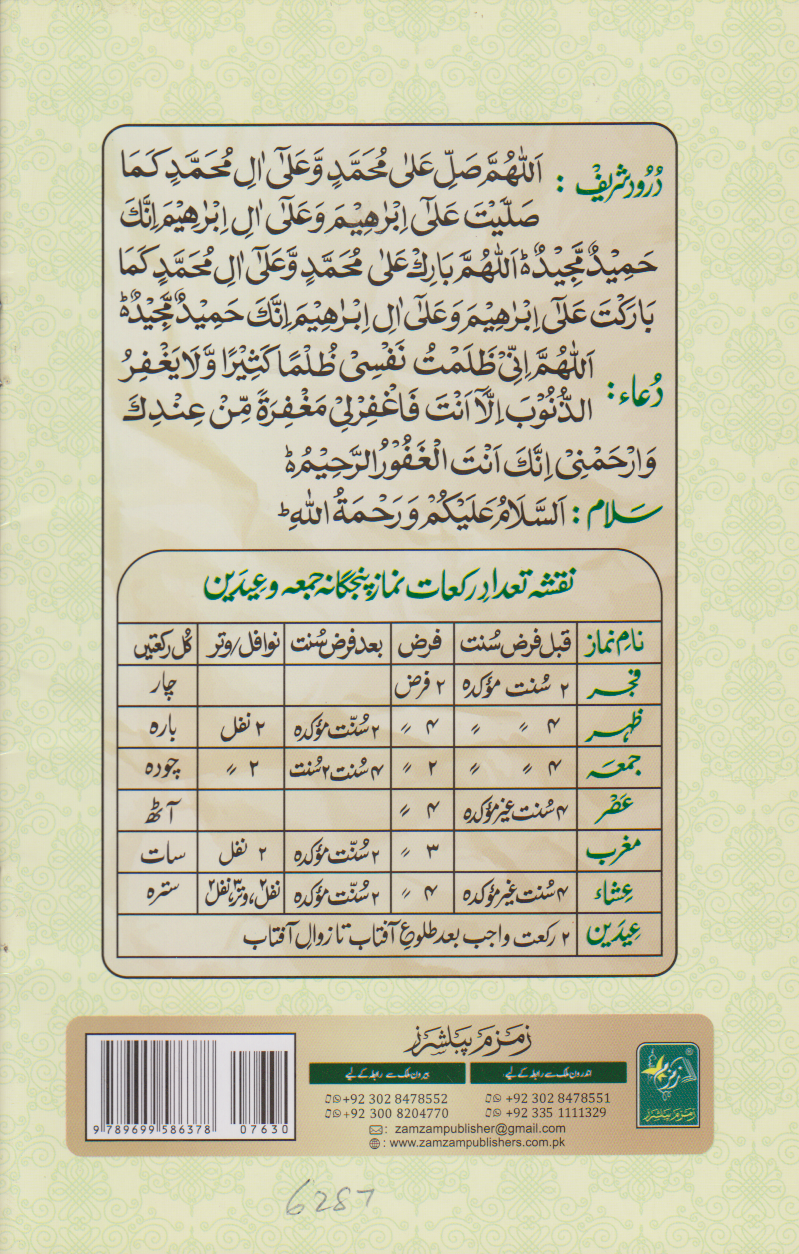 دُرُود شریف : اَللّٰهُمَّ صَلِّ عَلٰى مُحَمَّدٍ وَّعَلٰٓى اٰلِ مُحَمَّدٍ كَمَا
صَلَّيْتَ عَلٰٓى اِبْرٰهِيْمَ وَعَلٰٓى اٰلِ اِبْرٰهِيْمَ اِنَّكَ
حَمِيْدٌ مَّجِيْدٌ ؕ اَللّٰهُمَّ بَارِكْ عَلٰى مُحَمَّدٍ وَّعَلٰٓى اٰلِ مُحَمَّدٍ كَمَا
بَارَكْتَ عَلٰٓى اِبْرٰهِيْمَ وَعَلٰٓى اٰلِ اِبْرٰهِيْمَ اِنَّكَ حَمِيْدٌ مَّجِيْدٌ ؕ
دُعاء : اَللّٰهُمَّ اِنِّيْ ظَلَمْتُ نَفْسِيْ ظُلْمًا كَثِيْرًا وَّلَا يَغْفِرُ
الذُّنُوْبَ اِلَّآ اَنْتَ فَاغْفِرْلِيْ مَغْفِرَةً مِّنْ عِنْدِكَ
وَارْحَمْنِيْ اِنَّكَ اَنْتَ الْغَفُوْرُ الرَّحِيْمُ ؕ
سَلام : اَلسَّلَامُ عَلَيْكُمْ وَرَحْمَةُ اللّٰهِ ؕ
نقشہ تعدادِ رکعات نماز پنجگانہ جمعہ و عیدَین
نام نماز قبل فرض سُنت فرض بعد فرض سُنت نوافل/وتر کُل رکعتیں
فجر ۲ سُنت مؤکدہ ۲ فرض چار
ظہر ۴ 〃 〃 ۴ 〃 ۲ سُنّت مؤکدہ ۲ نفل بارہ
جمعہ ۴ 〃 〃 ۲ 〃 ۴ سُنت ۲ سُنت ۲ 〃 چودہ
عَصْر ۴ سُنت غیر مؤکدہ ۴ 〃 آٹھ
مغرب ۳ 〃 ۲ سُنّت مؤکدہ ۲ نفل سات
عِشاء ۴ سُنت غیر مؤکدہ ۴ 〃 ۲ سُنّت مؤکدہ ۲ نفل، ۳ وتر، ۲ نفل سترہ
عِیدَین ۲ رکعت واجب بعد طلوعِ آفتاب تا زوالِ آفتاب
زمزم پبلشرز
اندرون ملک سے رابطہ کے لیے
بیرون ملک سے رابطہ کے لیے
+92 302 8478551
+92 302 8478552
+92 335 1111329
+92 300 8204770
: zamzampublisher@gmail.com
: www.zamzampublishers.com.pk
زمزم
®
زمزم پبلشرز
9 789699 586378
07630
6287